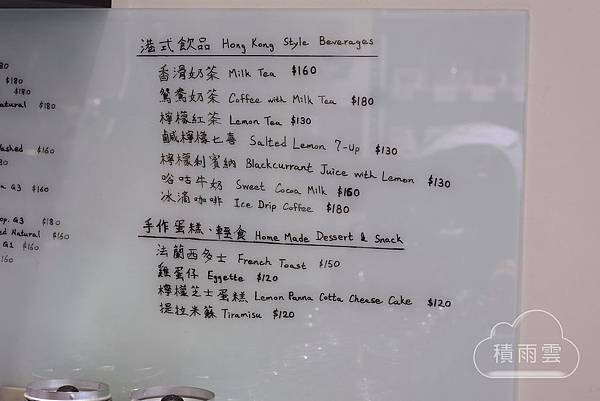 $180
$180
atural $180
Washed $160
a G3 $160
op. G3 $180
ed Natural $160
G1 $160
$160
港式飲品 Hong Kong Style Beverages
香滑奶茶 Milk Tea $160
鴛鴦奶茶 Coffee with Milk Tea $180
檸檬紅茶 Lemon Tea $130
鹹檸檬七喜 Salted Lemon 7-Up $130
檸檬利賓納 Blackcurrant Juice with Lemon $130
唂咕牛奶 Sweet Cocoa Milk $160
冰滴咖啡 Ice Drip Coffee $180
手作蛋糕、輕食 Home Made Dessert & Snack
法蘭西多士 French Toast $150
雞蛋仔 Eggette $120
檸檬芝士蛋糕 Lemon Panna Cotta Cheese Cake $120
提拉米蘇 Tiramisu $120
積雨雲